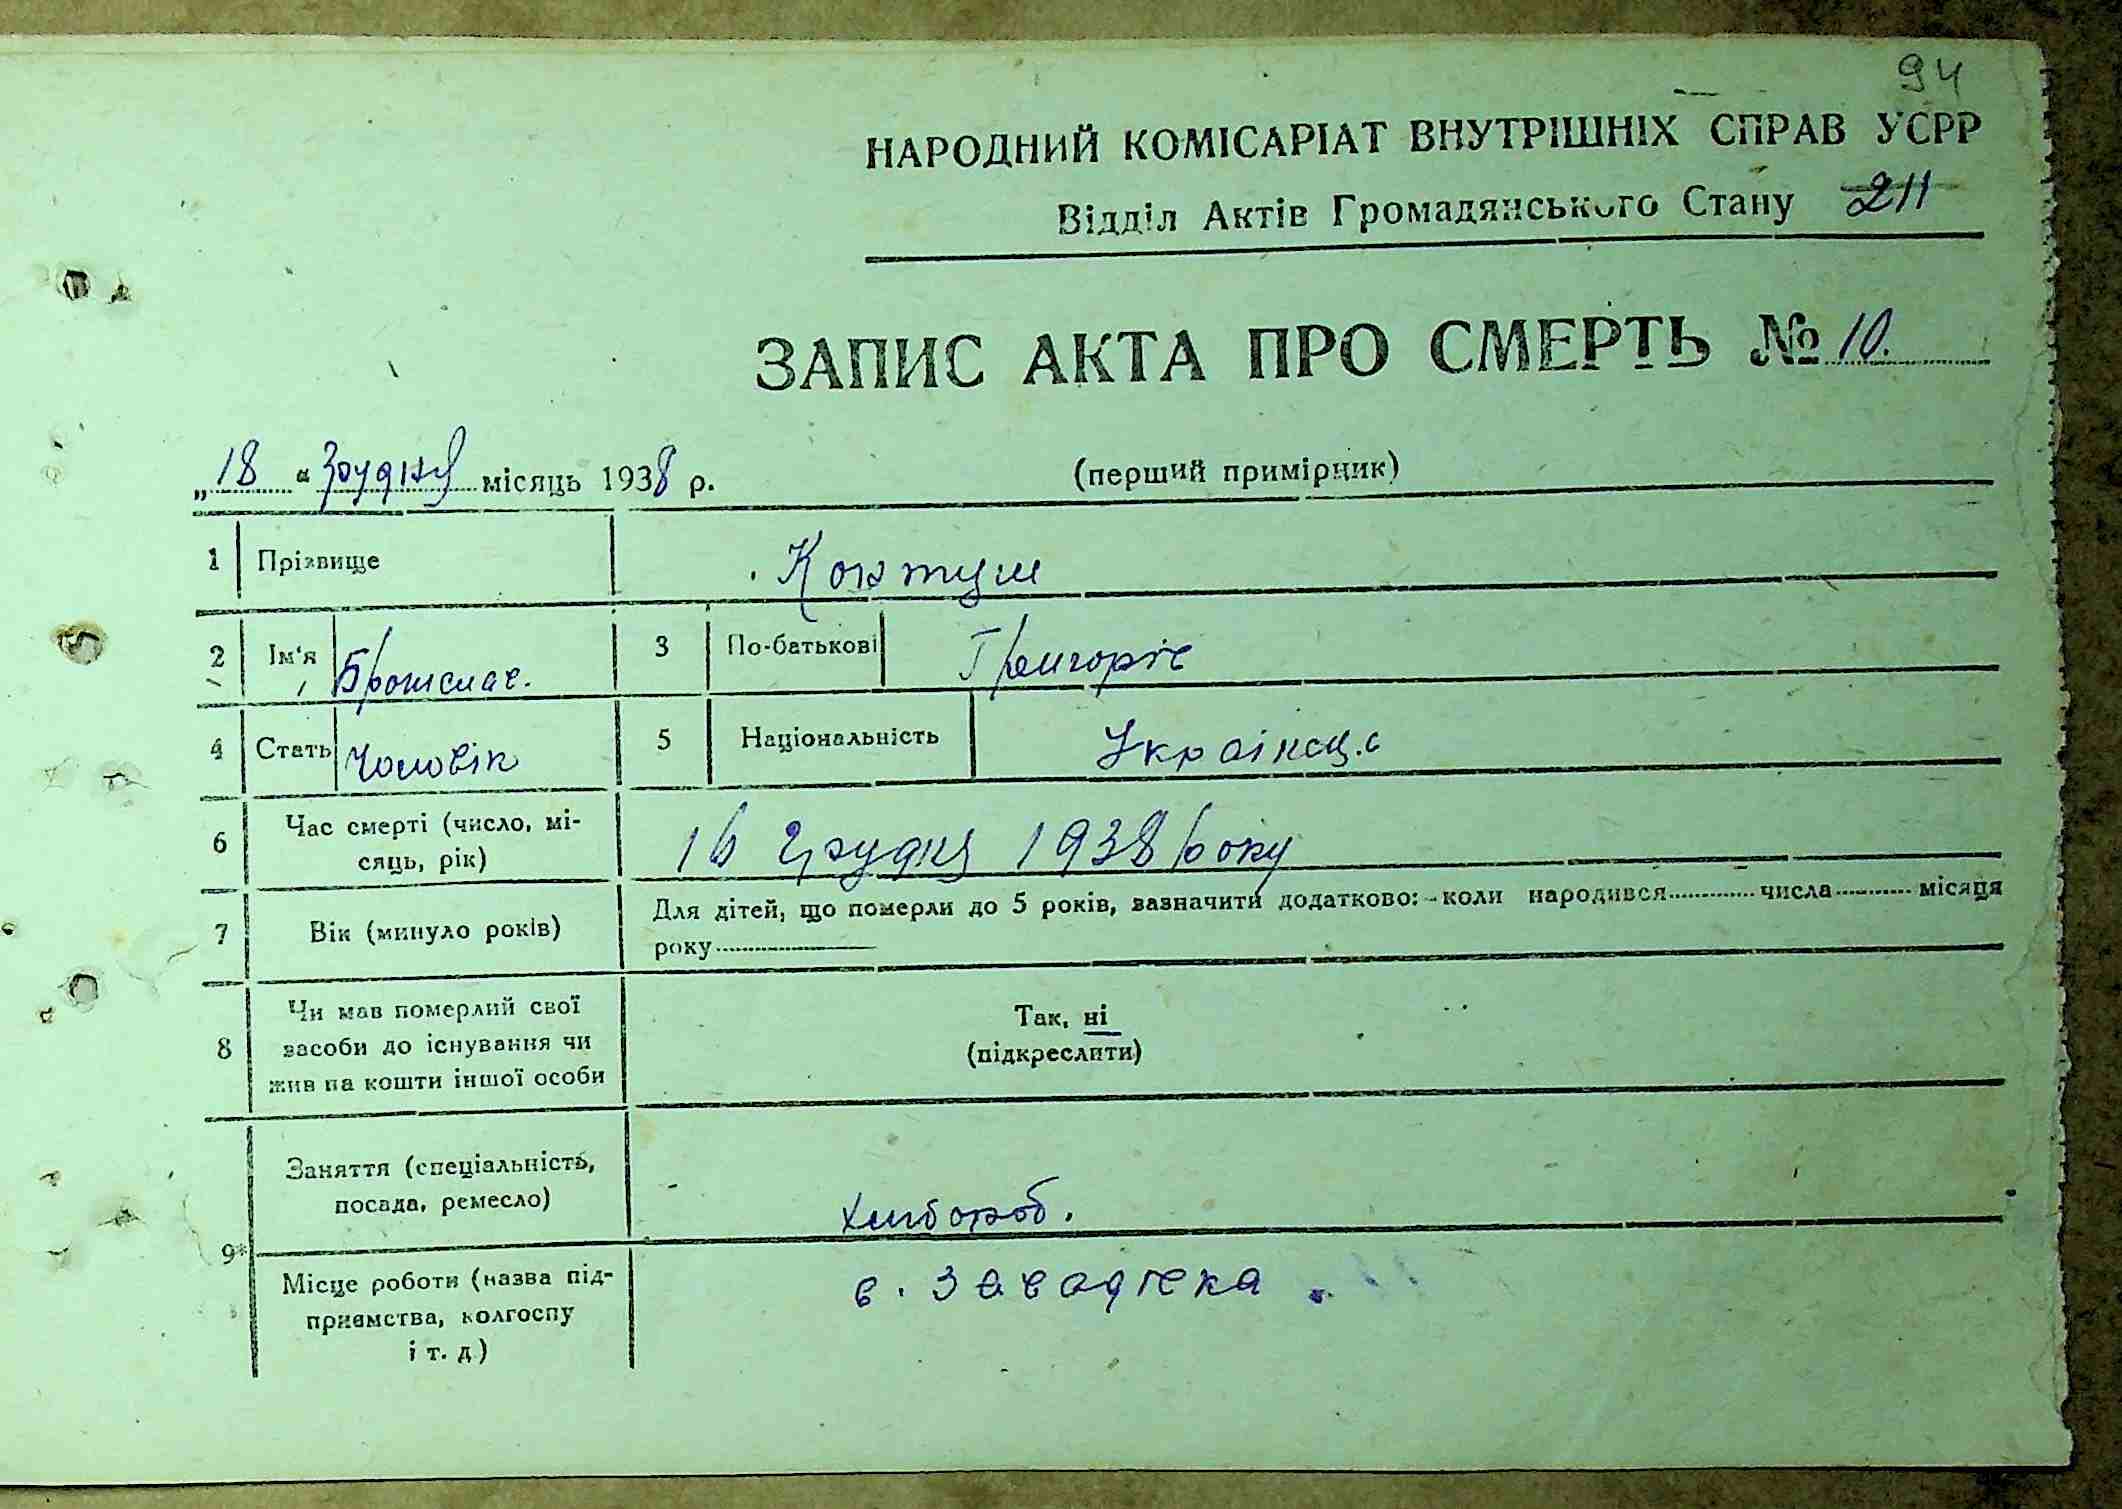 94
НАРОДНИЙ КОМІСАРІАТ ВНУТРІШНІХ СПРАВ УСРР
Відділ Актів Громадянського Стану 211
ЗАПИС АКТА ПРО СМЕРТЬ № 10.
„18“ грудня місяць 1938 р. (перший примірник)
1 Прізвище
2 Ім'я Броніслав. 3 По-батькові
4 Стать Чоловік 5 Національність Українец.
6 Час смерті (число, мі-
сяць, рік) 16 грудня 1938 року
7 Вік (минуло років) Для дітей, що померли до 5 років, зазначити додатково: коли народився числа місяця
року
8 Чи мав померлий свої
засоби до існування чи
жив на кошти іншої особи
Так, ні
(підкреслити)
9* Заняття (спеціальність,
посада, ремесло) хлібороб.
Місце роботи (назва під-
приємства, колгоспу
і т. д)